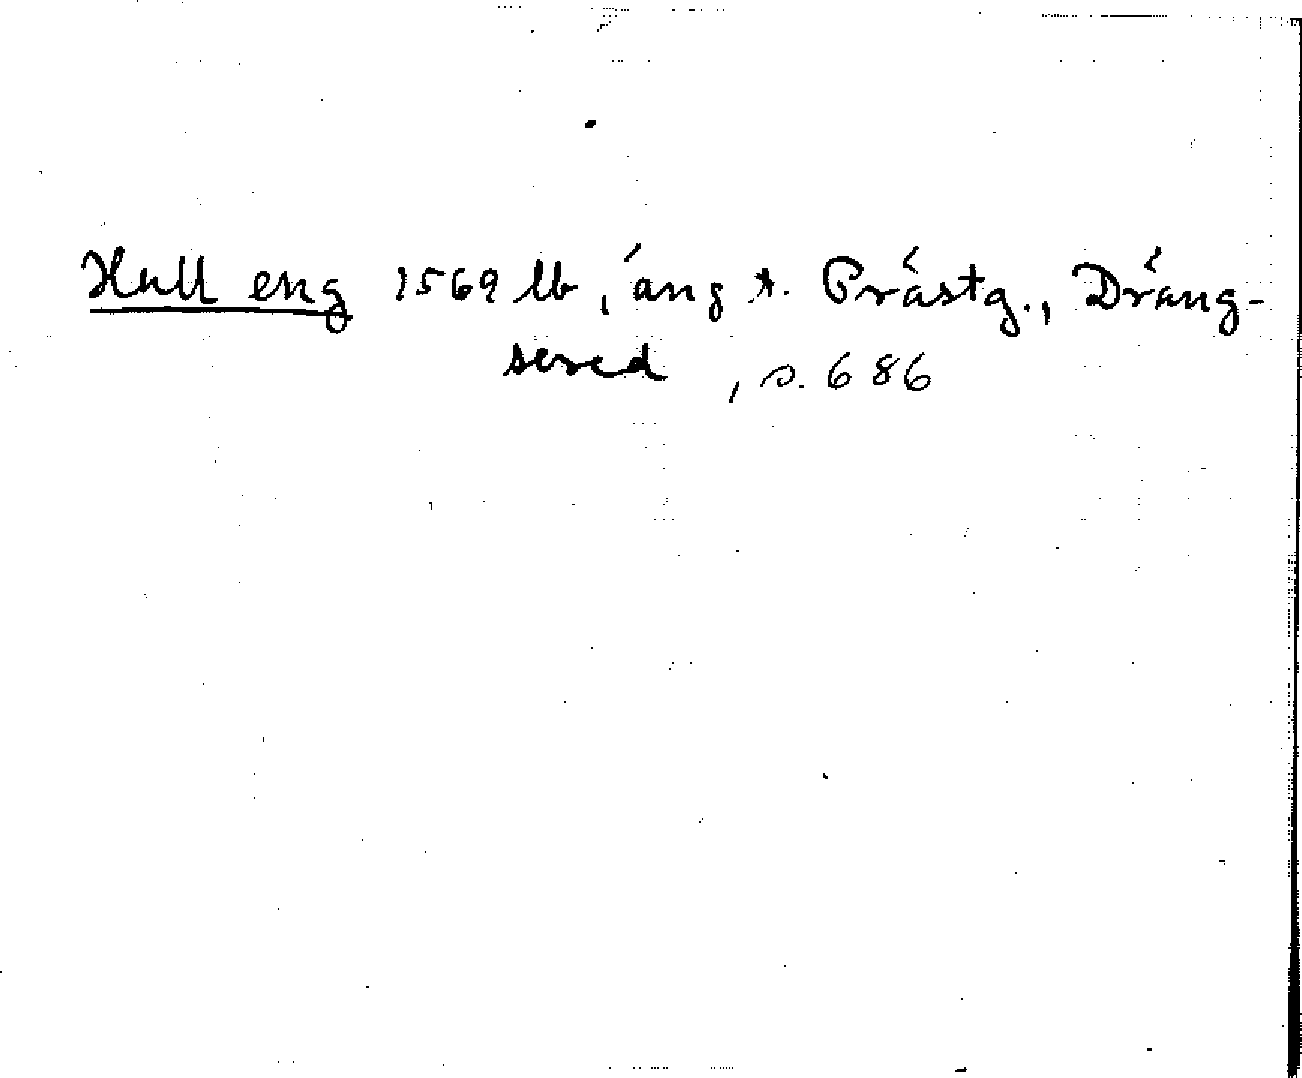 Hull eng 1569 lb, äng t. Prästg., Dräng-
sered, s. 686